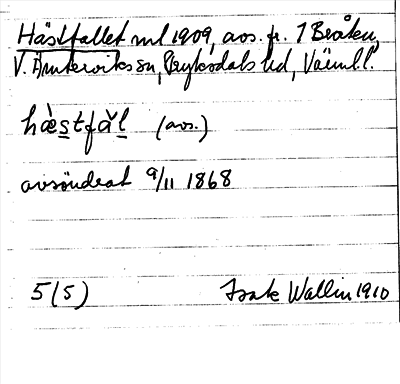 Hästfallet ml 1909, avs. fr. 1 Bråten,
V. Ämterviks sn, Fryksdals hd, Värml. l.
hæ̀stfa᷆l (avs.)
avsöndrat 9/11 1868
5(5) Isak Wallin 1910